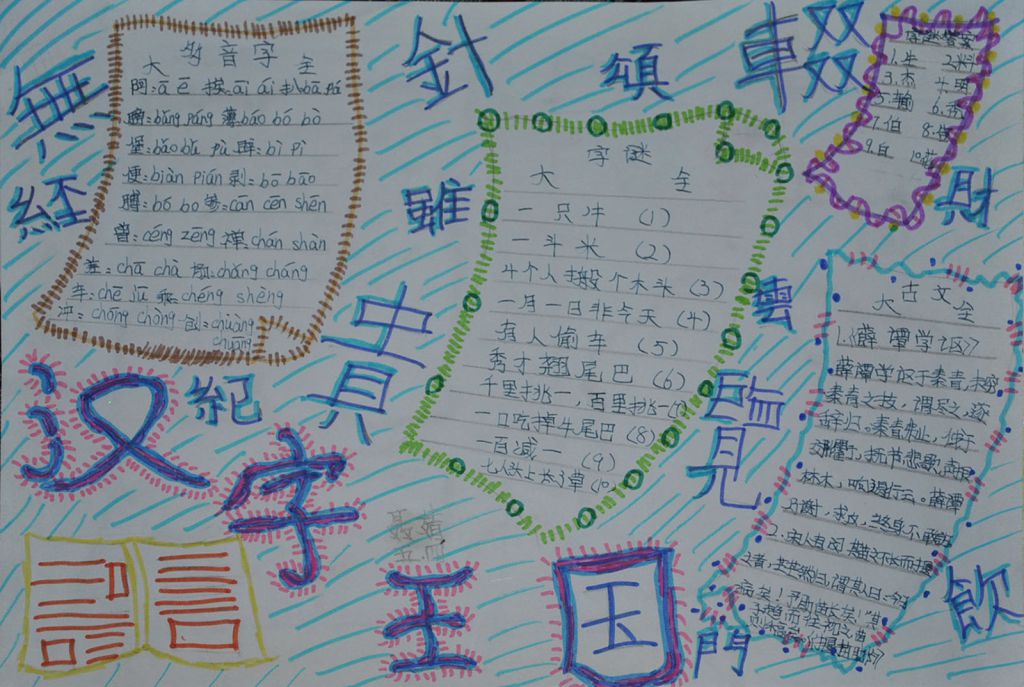 無
經
多音字
大 全
阿:ā ē 挨:āi ái 扒:bā pá
磅:bàng páng 薄:báo bó bò
堡:bǎo bǔ pù
便:biàn pián 剥:bō bāo
膊:bó bo 参:cān cēn shēn
曾:céng zēng 禅:chán shàn
差:chā chà 场:chǎng cháng
车:chē jū 乘:chéng shèng
冲:chōng chòng 创:chuàng
chuāng
針
頌
車
雖
紀
汉
字
字谜
大 全
一只牛 (1)
一斗米 (2)
4个人搬个木头 (3)
一月一日非今天 (4)
有人偷车 (5)
秀才翘尾巴 (6)
千里挑一,百里挑一(7)
一口吃掉牛尾巴 (8)
一百减一 (9)
七人头上长了草 (10)
字谜答案
1.生 2.料
3.杰 4.明
5.输 6.秃
7.伯 8.告
9.白 10.花
財
雲
古文
大 全
1.《薛谭学讴》
薛谭学讴于秦青,未穷
秦青之技,谓尽之,遂
辞归。秦青弗止,饯于
郊衢,抚节悲歌,声振
林木,响遏行云。薛谭
乃谢,求反,终身不敢言归
2.宋人有闵其苗之不长而揠
之者,芒芒然归,谓其人曰:今日
病矣!予助苗长矣!"其
子趋而往视之,苗
王
玉
門
飲